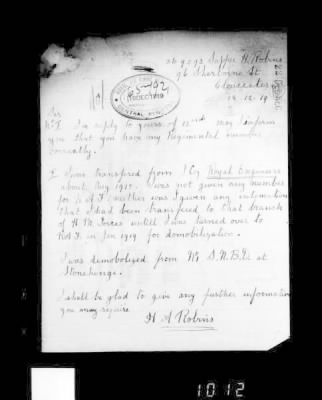 Sapper H. Robins
96 Sherborne St
Gloucester
19.12.19
Sir
In reply to yours of 12nd may I inform
you that you have my Regimental number
correctly.
I was transfered from I Co Royal Engineers
about Aug 1918. I was not given any number
for R A F neither was I given any intimation
that I had been transfered to that branch
of H M Forces untill I was turned over to
R A F in Jan 1919 for demobilization.
I was demobolized from No
Stonehenge.
I shall be glad to give any further information
you may require
H A Robins
1012